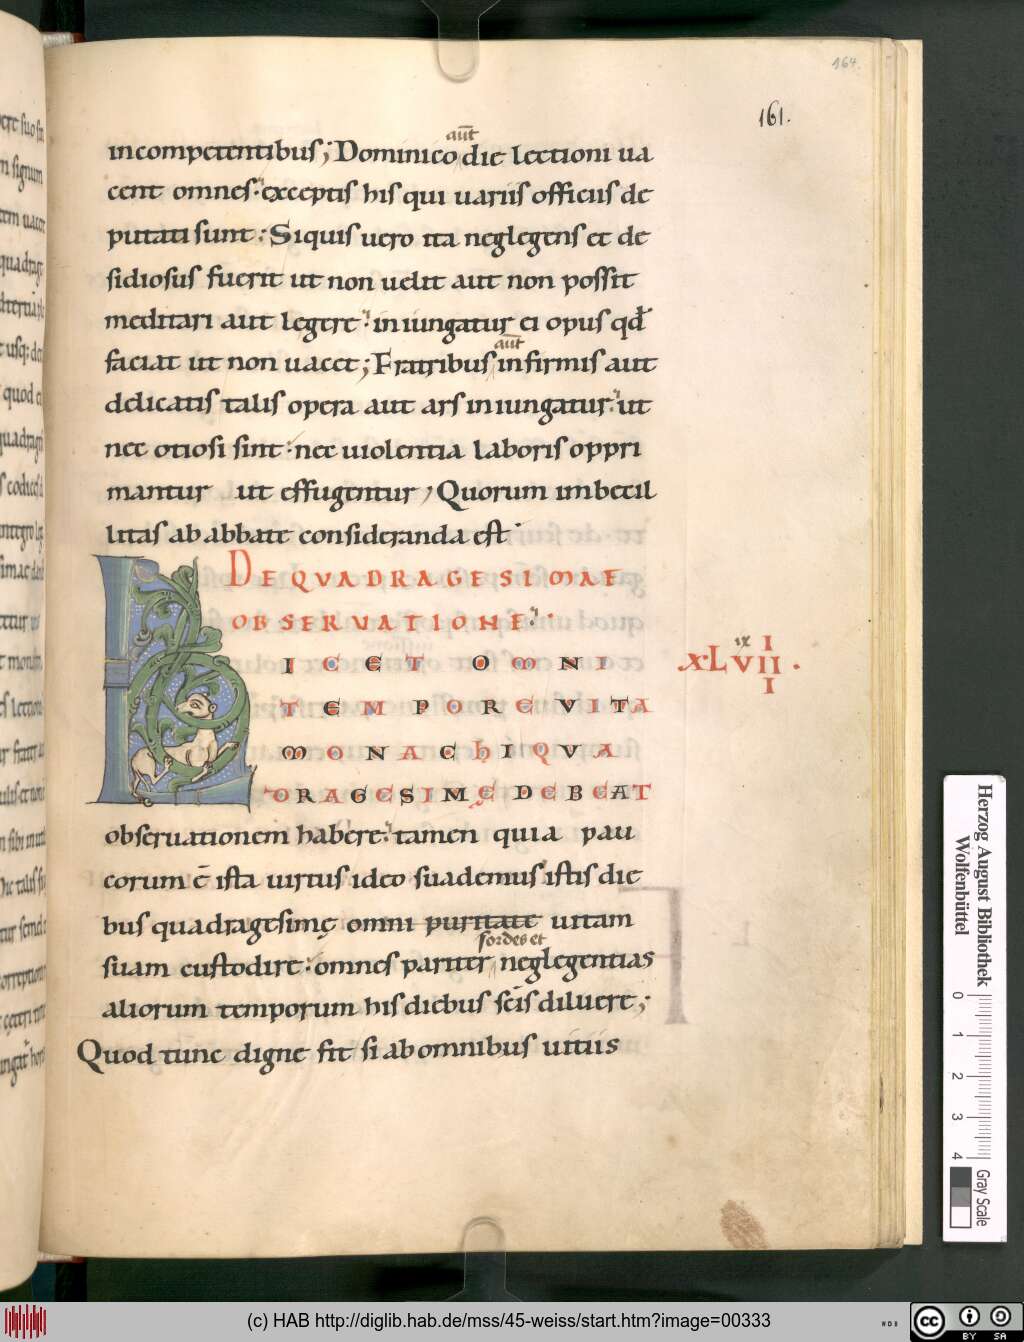 164.
161.
aūt
incompetentibus; Dominico die lectioni ua
cent omnes: exceptis his qui uariis officiis de
putati sunt: Siquis uero ita neglegens et de
sidiosus fuerit ut non uelit aut non possit
meditari aut legere: iniungatur ei opus qđ
aūt
faciat ut non uacet; Fratribus infirmis aut
delicatis talis opera aut ars iniungatur: ut
nec otiosi sint: nec uiolentia laboris oppri
mantur ut effugentur; Quorum imbecil
litas ab abbate consideranda est
DE QVADRAGESIMAE
OBSERVATIONE
LICET OMNI
ix
XLVIIII.
TEMPORE VITA
MONACHI QVA
DRAGESIMĘ DEBEAT
obseruationem habere: tamen quia pau
corum ē ista uirtus ideo suademus istis die
bus quadragesimę omni puritate uitam
sordes et
suam custodire: omnes pariter neglegentias
aliorum temporum his diebus scīs diluere;
Quod tunc digne fit si ab omnibus uitiis
Herzog August Bibliothek
Wolfenbüttel
0 1 2 3 4
Gray Scale
(c) HAB http://diglib.hab.de/mss/45-weiss/start.htm?image=00333
cc BY SA